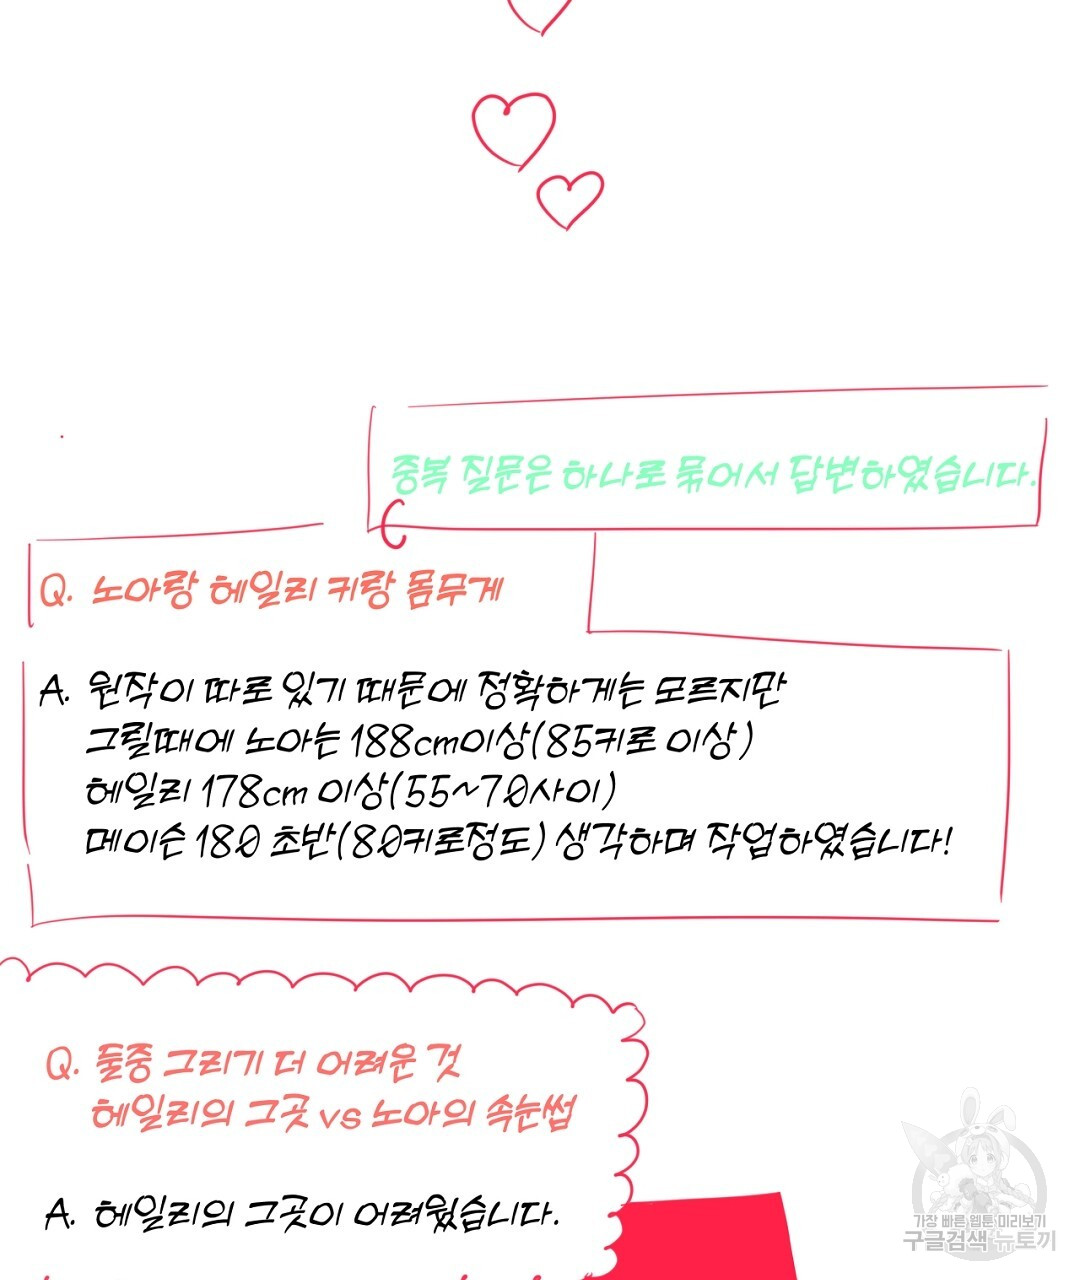 중복 질문은 하나로 묶어서 답변하였습니다.
Q. 노아랑 헤일리 키랑 몸무게
A. 원작이 따로 있기 때문에 정확하게는 모르지만
그릴때에 노아는 188cm이상(85키로 이상)
헤일리 178cm 이상(55~70사이)
메이슨 180 초반(80키로정도) 생각하며 작업하였습니다!
Q. 둘중 그리기 더 어려운 것
헤일리의 그곳 vs 노아의 속눈썹
A. 헤일리의 그곳이 어려웠습니다.
가장 빠른 웹툰 미리보기
구글검색 뉴토끼